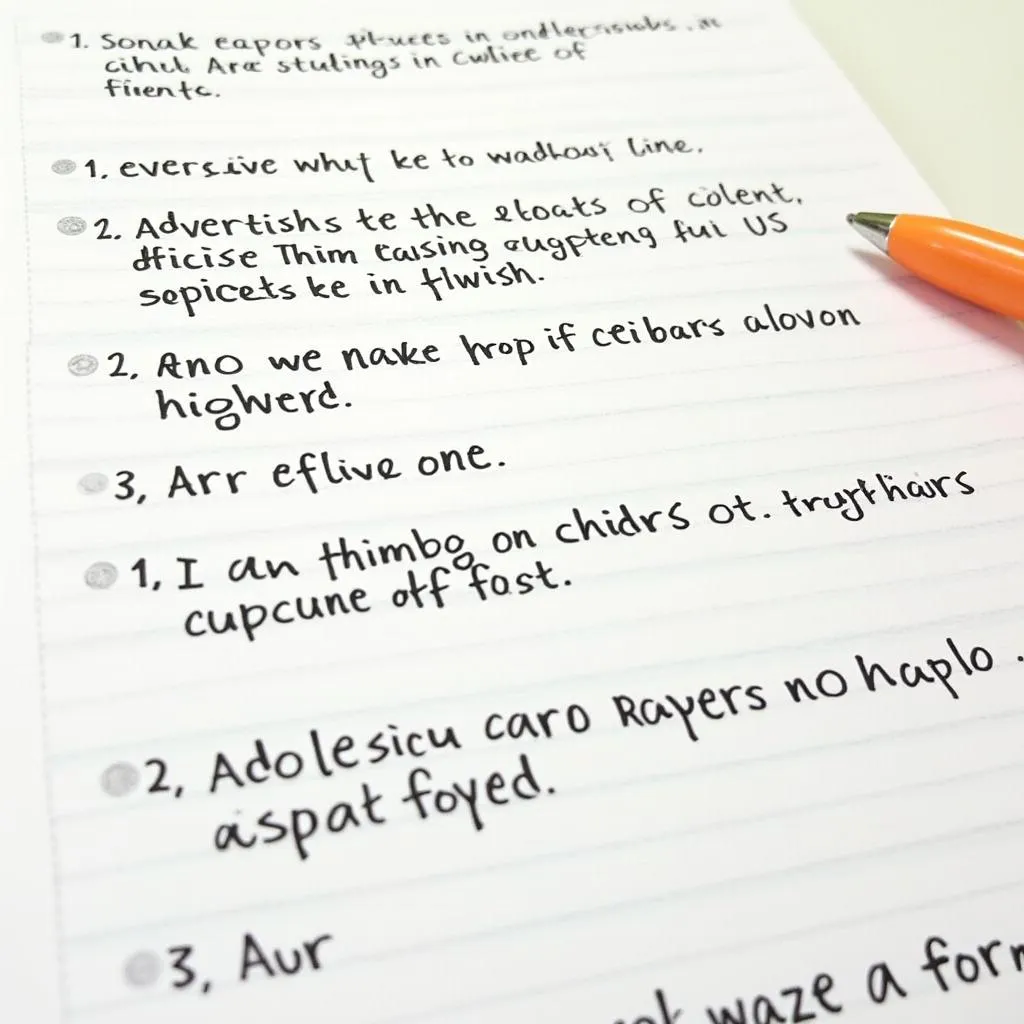 1. Sonak eapors in
cihul Are stulings in Cwliee of
fientc.
1. everscive whut ke to line.
2. Advertishs te the eloats of colent,
dficise Thim Eausing augpteng fui US
sepicets ke in flwish.
2, Ano we nake hrop if ceibars alovon
highwerd.
3, Arr eflive one.
1, I an thimbg on chidrs ot.
cupcune off fost.
2, Adolesicu caro Rayers no haplo.
aspat foyed.
3, Aur
waze a form